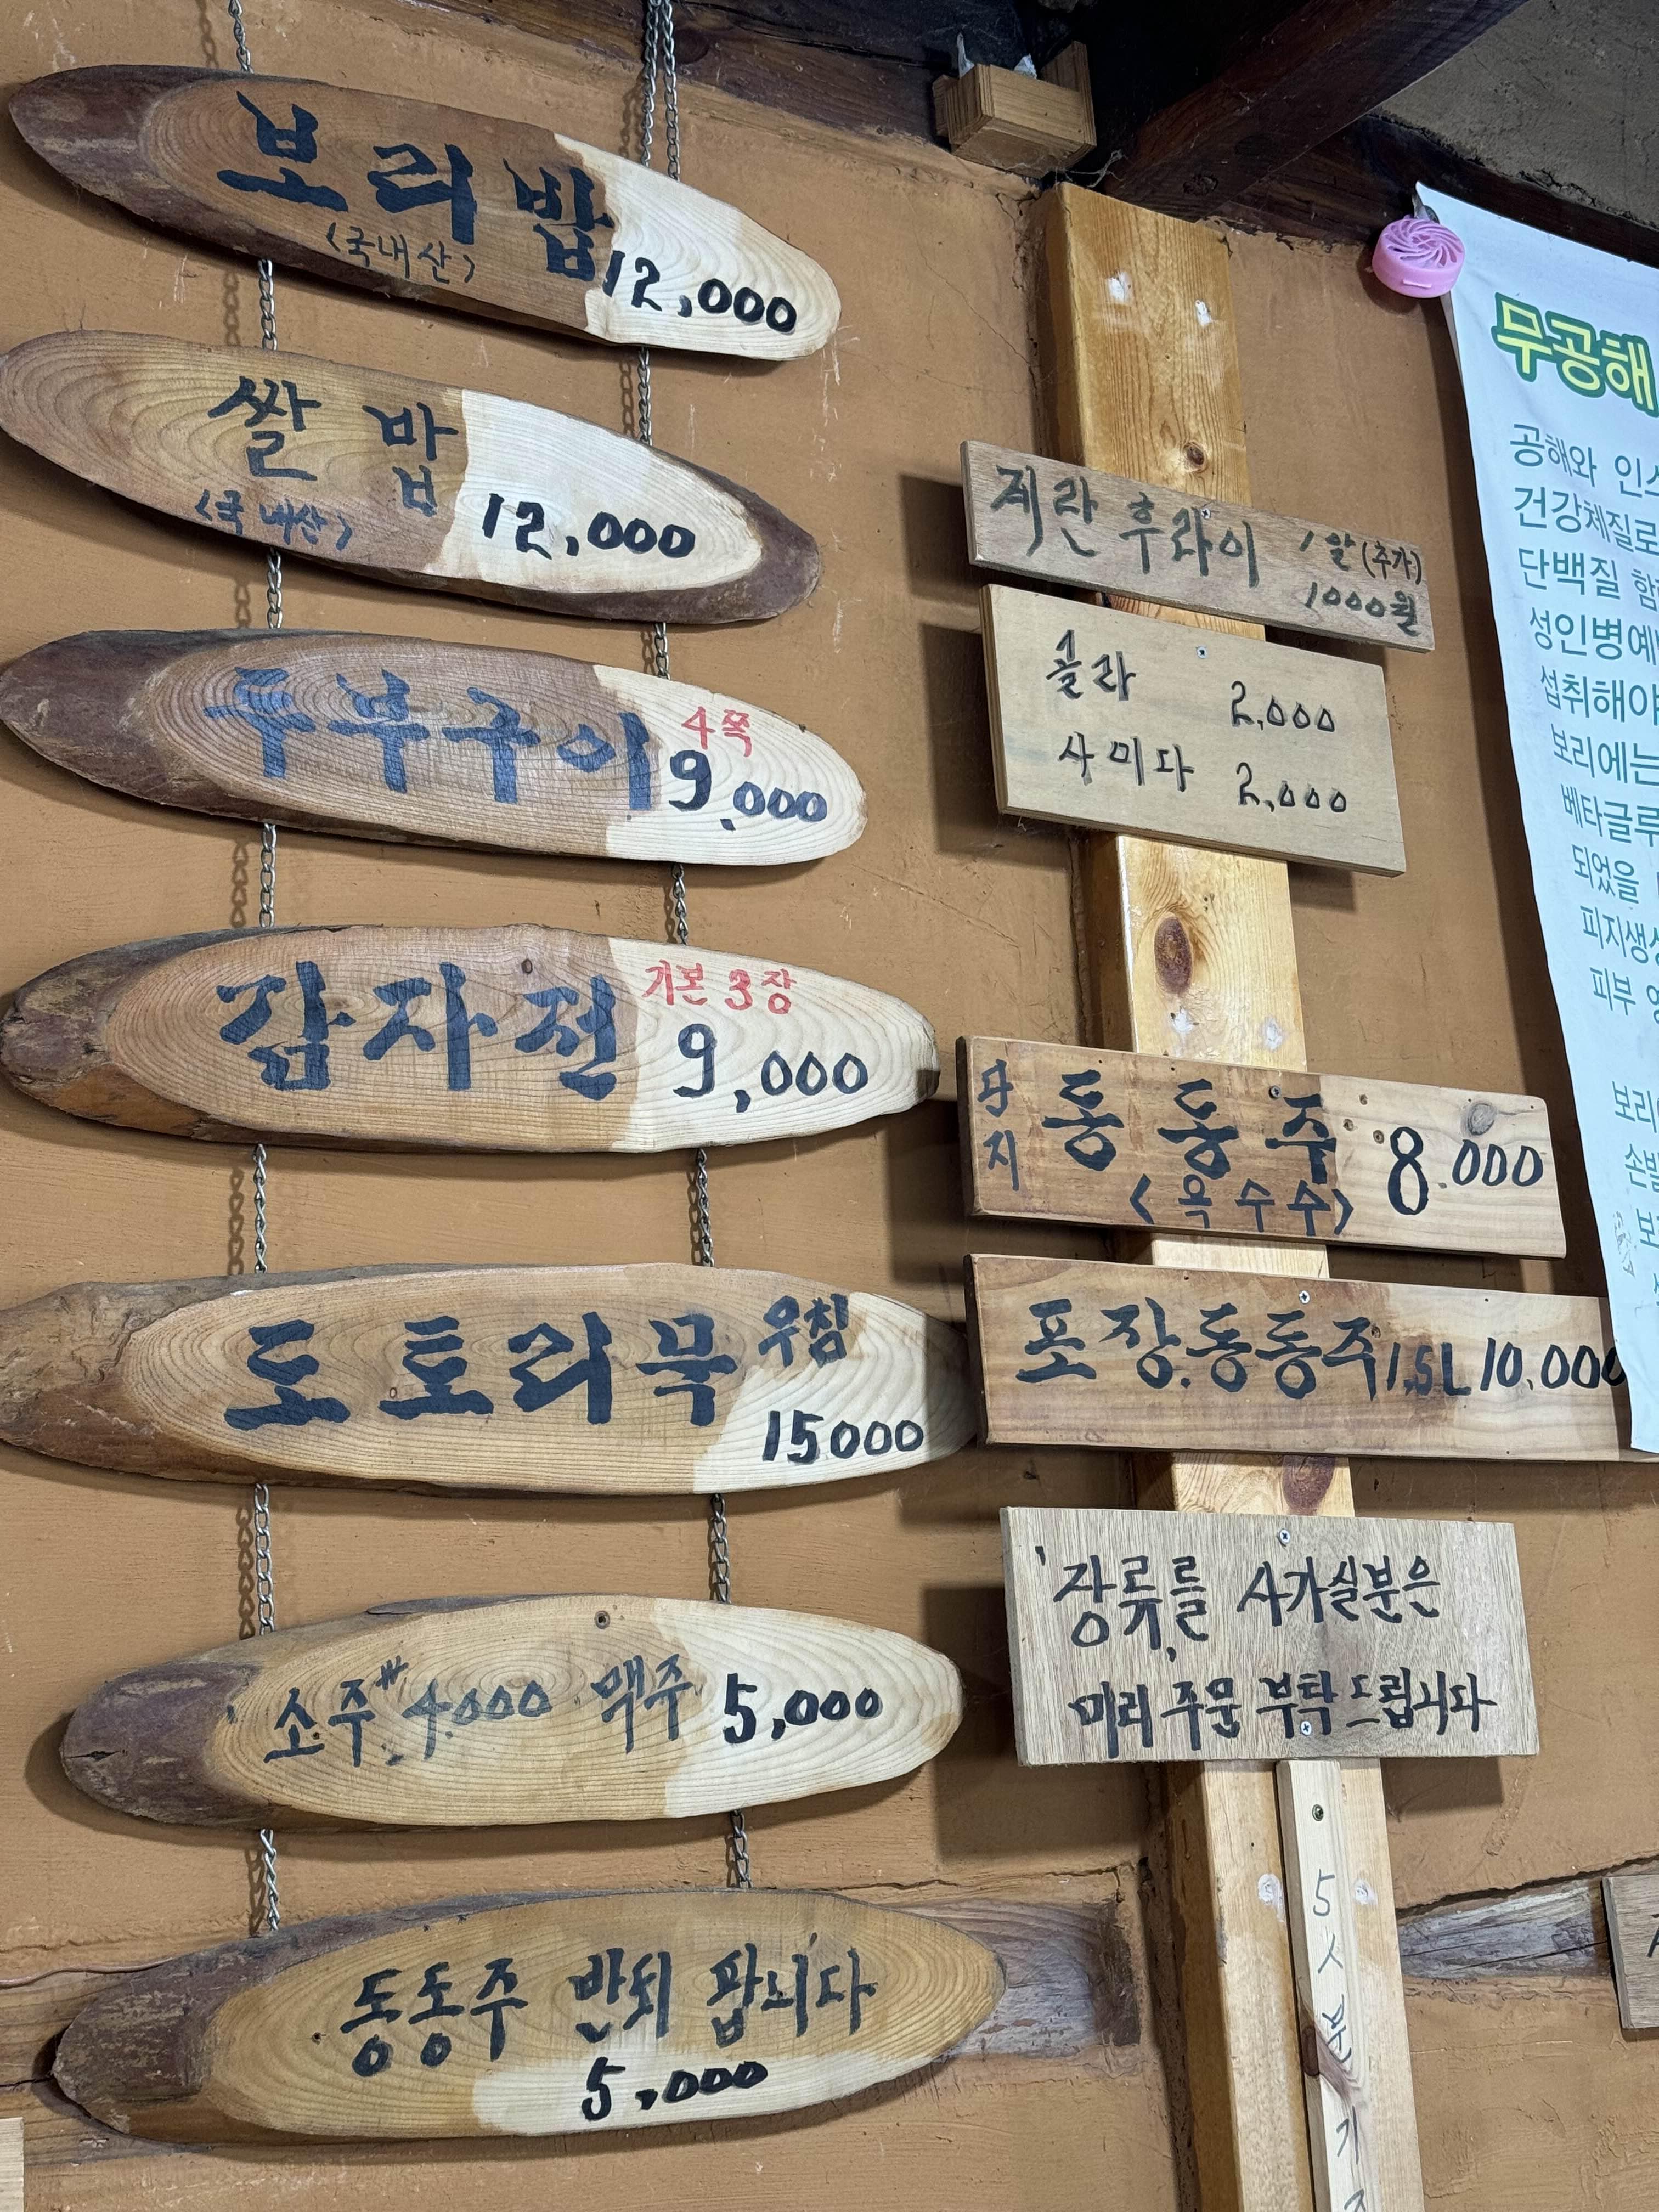 보리밥
<국내산>
12,000
쌀밥
<국내산>
12,000
두부구이
4쪽
9,000
감자전
기본 3장
9,000
도토리묵
무침
15000
소주 4,000 맥주 5,000
동동주 반되 팝니다
5,000
계란 후라이 1알(추가)
1000원
콜라 2,000
사이다 2,000
단지
동동주
<옥수수>
8.000
포장.동동주 1,5L 10.000
장류를 사가실분은
미리 주문 부탁드립니다
5人분
기
무공해
공해와
건강체질로
단백질
성인병예
섭취해야
보리에는
베타글루
되었을
피지생성
피부
보리
손발